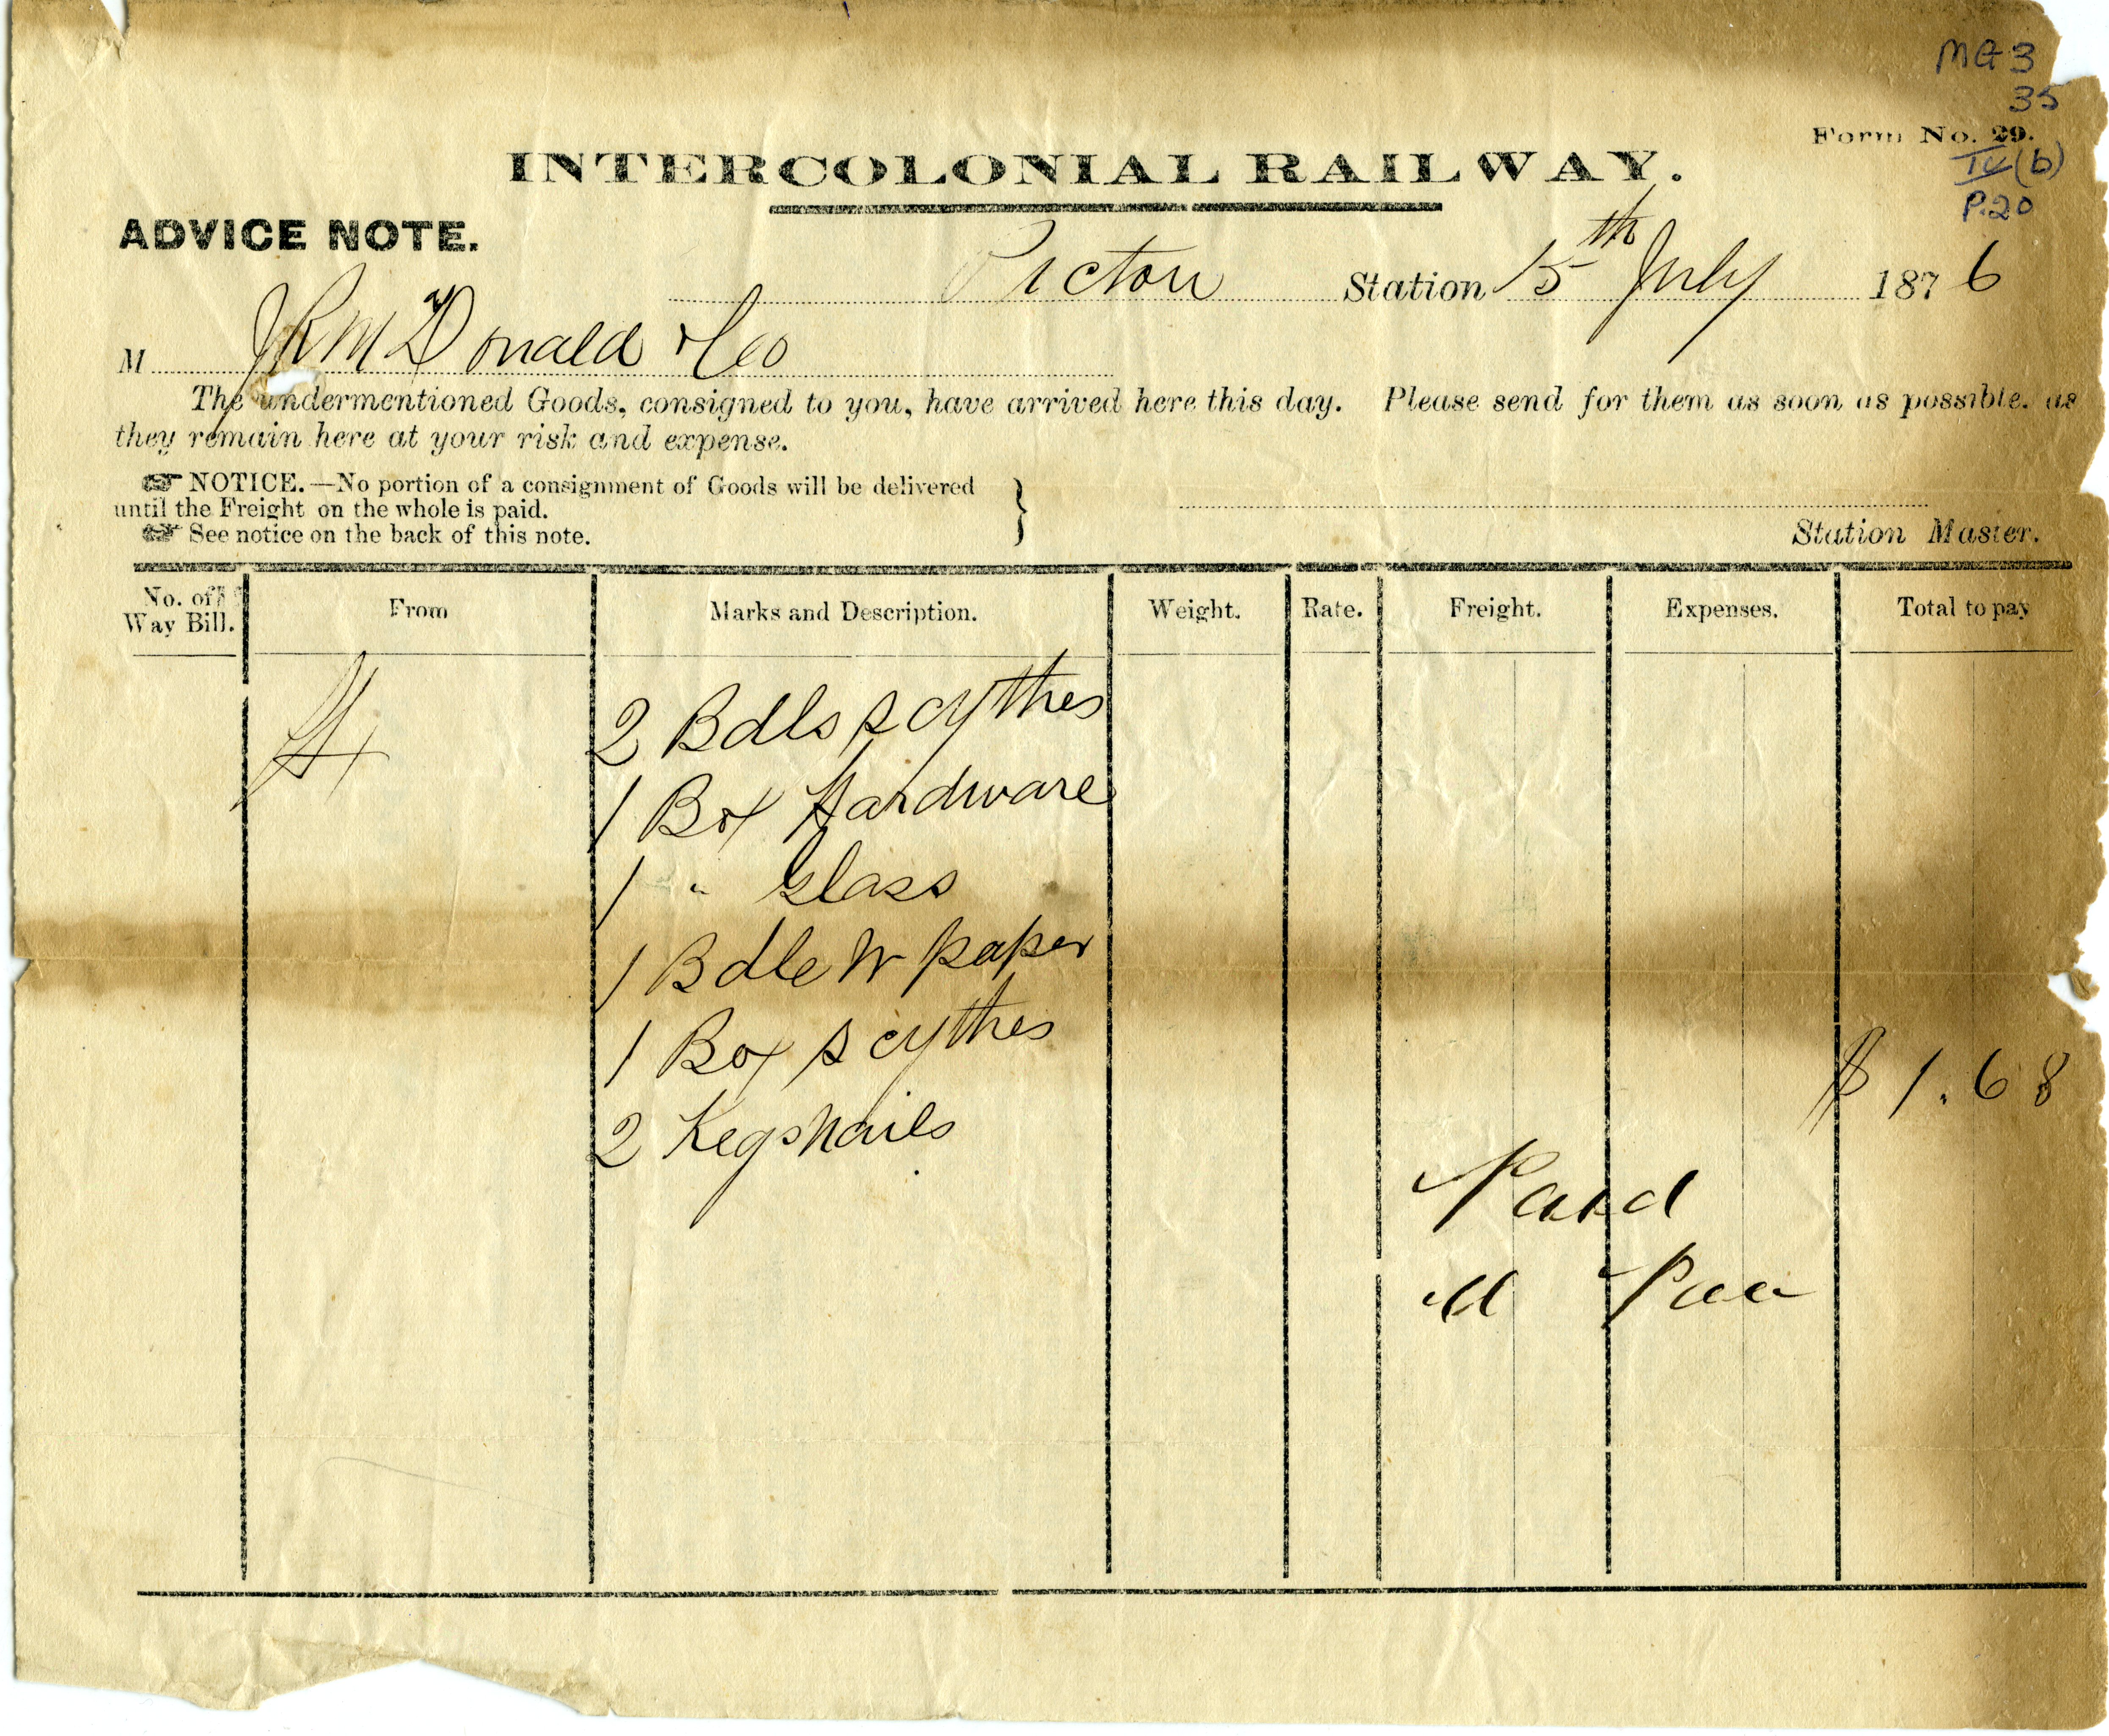 MG 3
35
Form No. 29.
IV (b)
P.20
INTERCOLONIAL RAILWAY.
ADVICE NOTE.
Pictou Station 15th July 1876
M J R McDonald & Co
The undermentioned Goods, consigned to you, have arrived here this day. Please send for them as soon as possible. as
they remain here at your risk and expense.
☞ NOTICE.—No portion of a consignment of Goods will be delivered
until the Freight on the whole is paid.
☞ See notice on the back of this note.
Station Master.
No. of Way Bill. From Marks and Description. Weight. Rate. Freight. Expenses. Total to pay
H 2 Bdls scythes
1 Box Hardware
1 " Glass
1 Bdle W paper
1 Box scythes
$ 1.68
2 Kegs nails
Paid